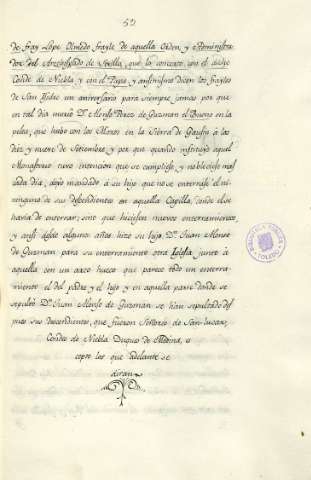 52
de fray Lope Olmedo frayle de aquella Orden, y Administra
dor del Arzobispado de Sevilla, que la concerto con el dicho
Conde de Niebla y con el Papa, y ansimismo dicen los frayles
de San Isidro un aniversario para siempre jamas por que
en tal dia murio D.n Alonso Perez de Guzman el Bueno en la
pelea, que hubo con los Moros en la Sierra de Gausin à los
diez y nueve de Setiembre, y por que quando instituyo aquel
Monasterio tuvo intencion que se cumpliese, y nobleciese mas
cada dia; dejo mandado à su hijo que no se enterrase ni
ninguno de sus descendientes en aquella Capilla, donde el se
havia de enterrar; sino que hiciesen nuevos enterramientos
y ansi desde algunos años hizo su hijo D.n Juan Alonso
de Guzman para su enterramiento otra Iglesia junto à
aquella con un arco hueco que parece todo un enterra
miento el del padre y el hijo y en aquella parte donde se
sepultó D.n Juan Alonso de Guzman se han sepultado des
pues sus descendientes, que fueron Señores de San-lucar,
Condes de Niebla Duques de Medina,
cepto los que adelante se
diran
BIBLIOTECA PUBLICA
TOLEDO